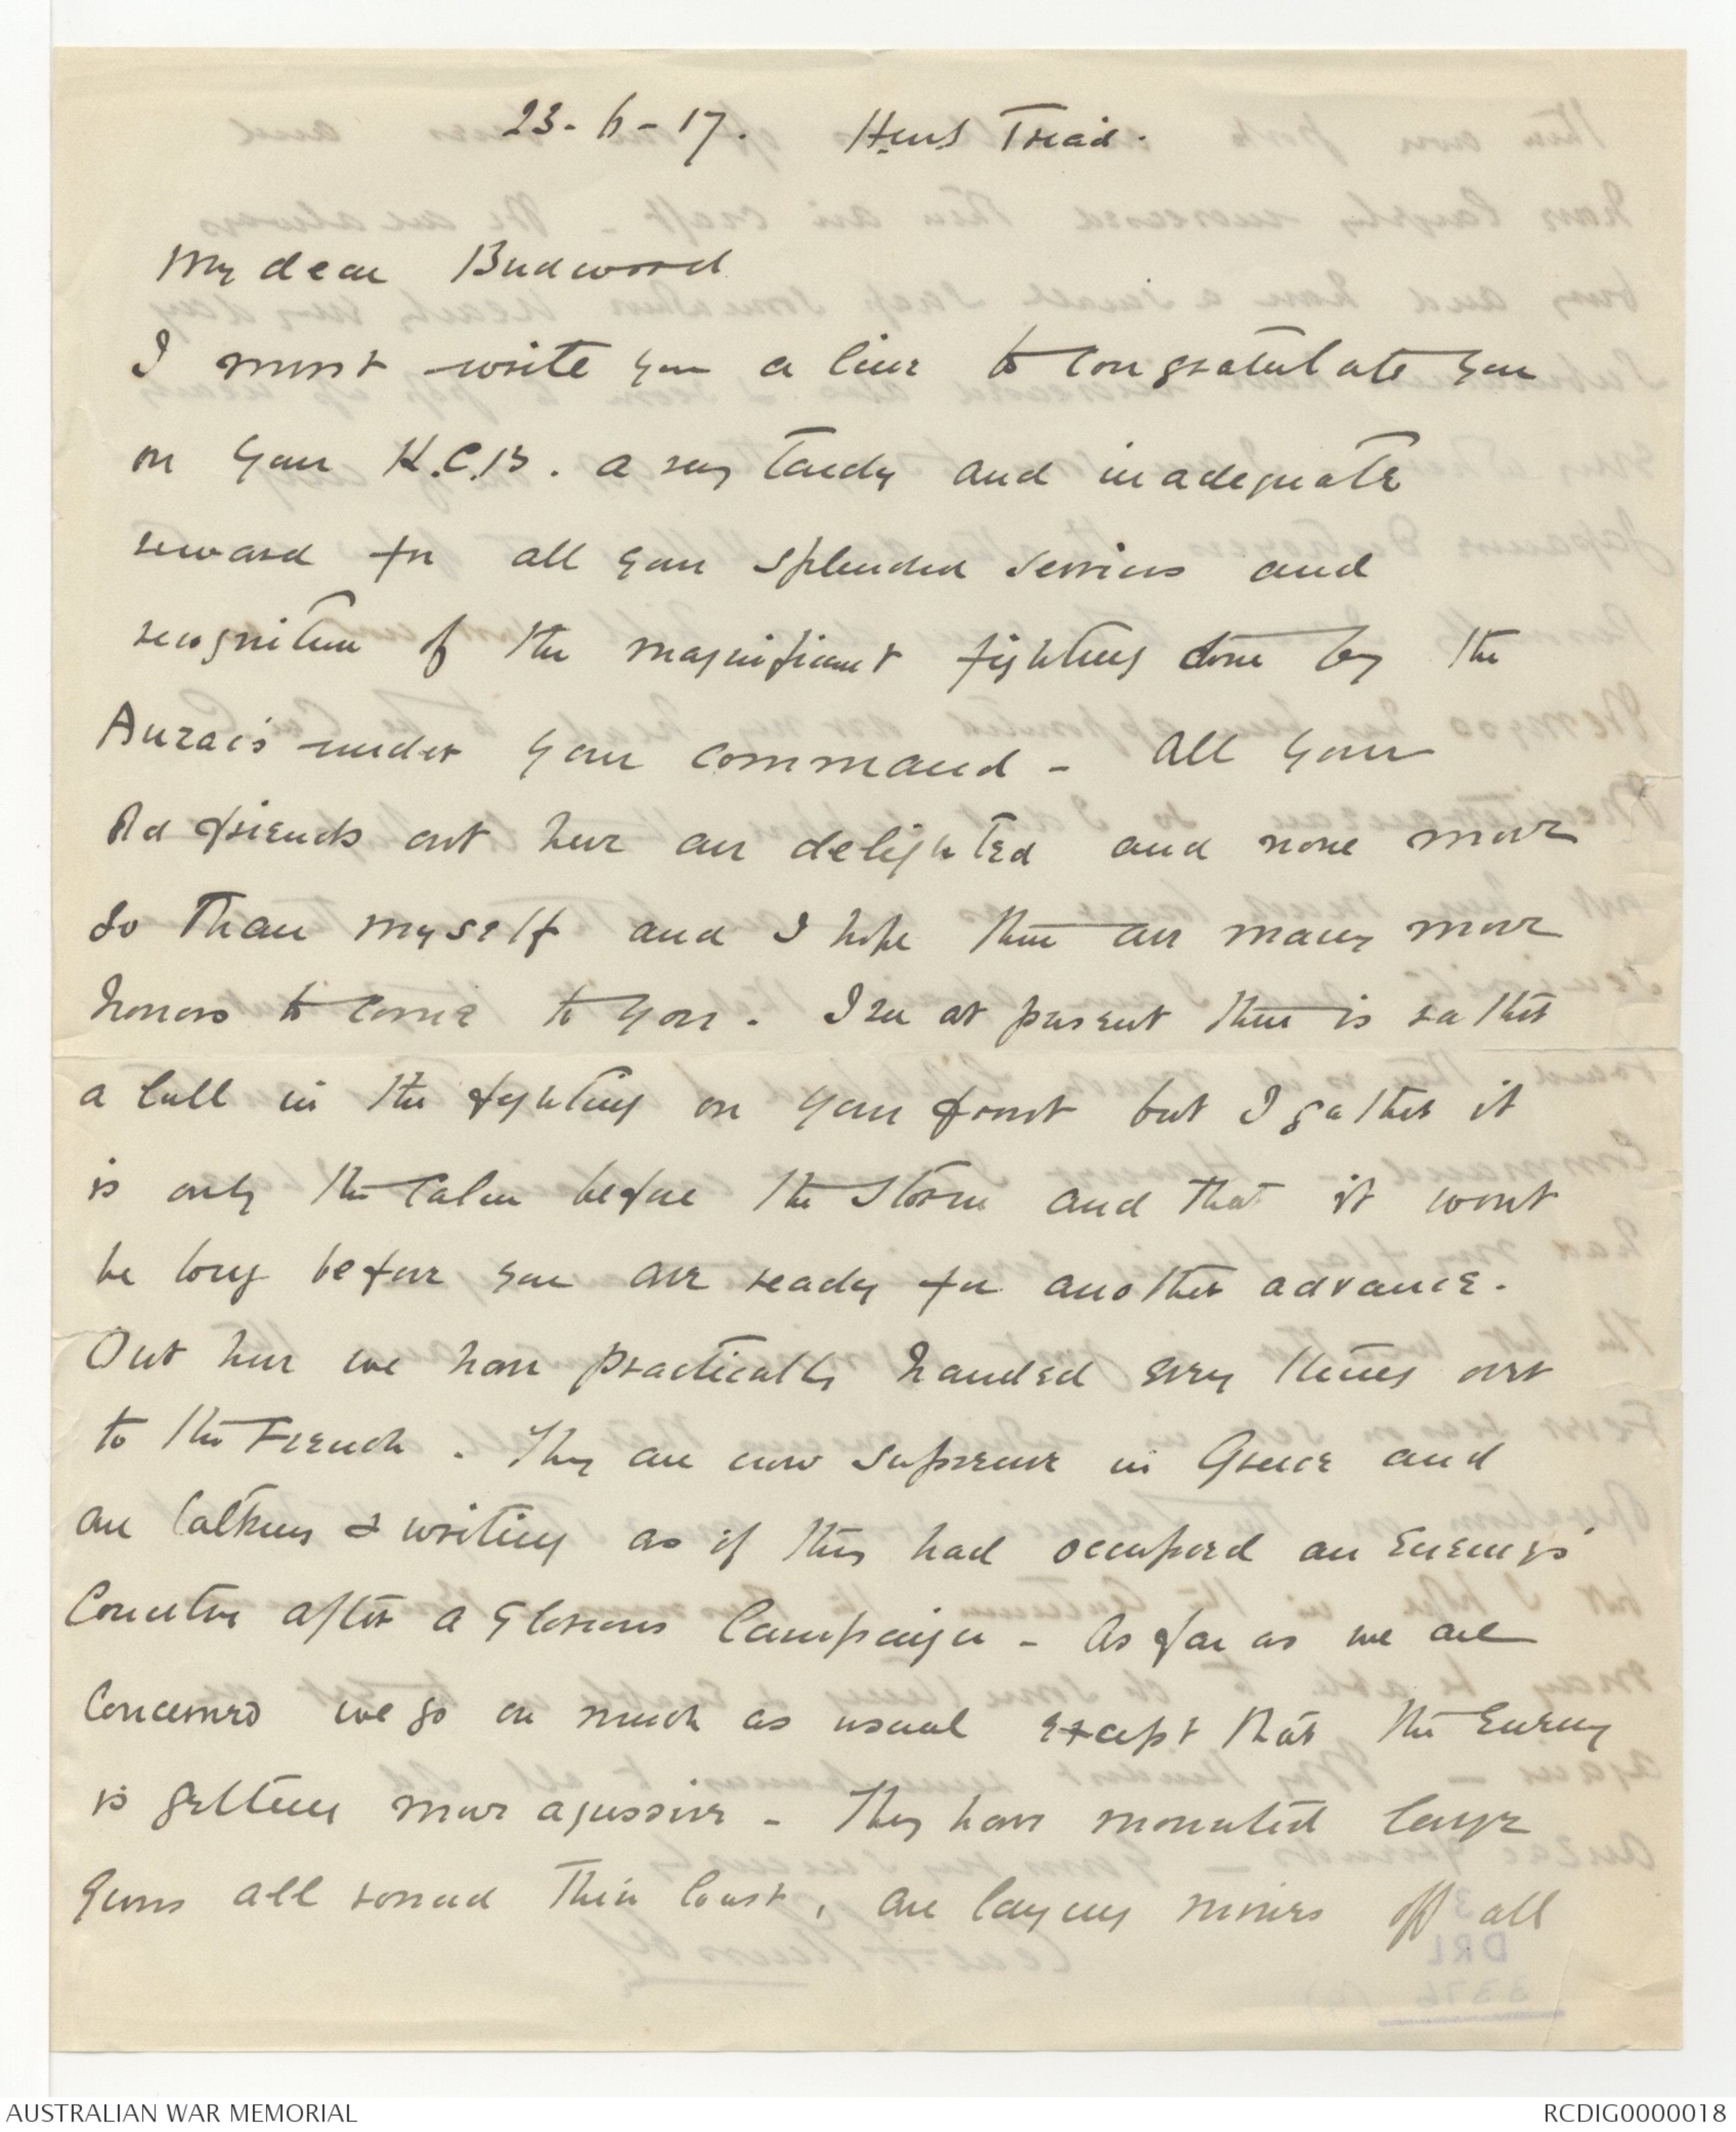 23-6-17. H.M.S Triad.
My dear Birdwood
I must write you a line to congratulate you
on your K.C.B. a very tardy and inadequate
reward for all your splendid services and
recognition of the magnificent fighting done by the
Anzacs under your command - All your
old friends out here are delighted and none more
so than myself and I hope there are many more
honors to come to you. I see at present there is rather
a lull in the fighting on your front but I gather it
is only the calm before the storm and that it wont
be long before you are ready for another advance.
Out here we have practically handed every thing over
to the French. They are now supreme in Greece and
are talking & writing as if they had occupied an Enemys'
Country after a Glorious Campaign - As far as we are
concerned we go on much as usual except that the Enemy
is getting more agressive - They have mounted large
guns all round their coast, are laying mines off all
AUSTRALIAN WAR MEMORIAL
RCDIG0000018